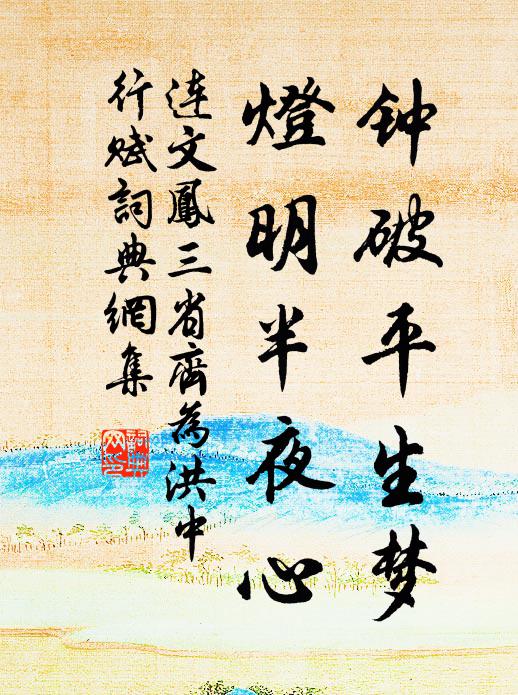 钟破平生梦
燈明半夜心
连文鳳三省齋為洪中
行赋詞典網集